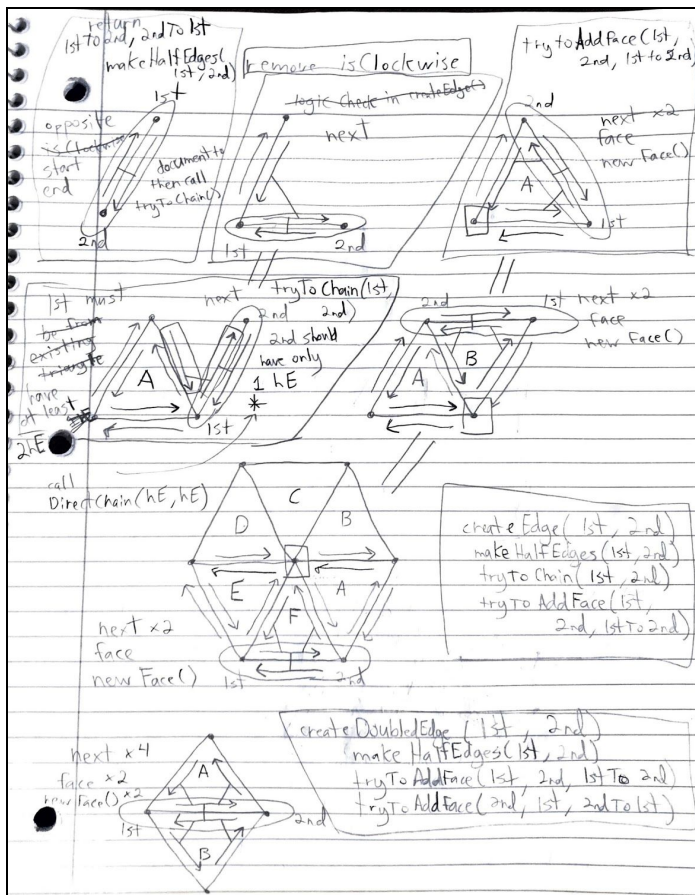 return
1st To 2nd, 2nd To 1st
makeHalfEdges(
1st, 2nd)
1st
opposite
isClockwise
start
end
document to
then call
tryToChain()
2nd
remove isClockwise
logic check in createEdge()
next
1st
2nd
try to Add Face (1st,
2nd, 1st to 2nd)
2nd
next x2
face
new Face()
A
1st
1st must
be from
existing
triangle
have
at least
2hE
next
tryTo Chain (1st,
2nd)
2nd
2nd should
have only
1 hE
*
A
1st
2nd
1st
next x2
face
new Face()
A
B
call
DirectChain(hE, hE)
C
D
B
E
A
F
next x2
face
new Face()
1st
2nd
createEdge( 1st, 2nd)
makeHalfEdges(1st, 2nd)
tryTo Chain (1st, 2nd)
tryTo AddFace(1st,
2nd, 1stTo2nd)
next x4
face x2
new Face() x2
A
1st
2nd
B
create DoubledEdge (1st, 2nd)
make HalfEdges(1st, 2nd)
tryTo AddFace(1st, 2nd, 1stTo 2nd)
tryTo AddFace(2nd, 1st, 2nd To 1st)